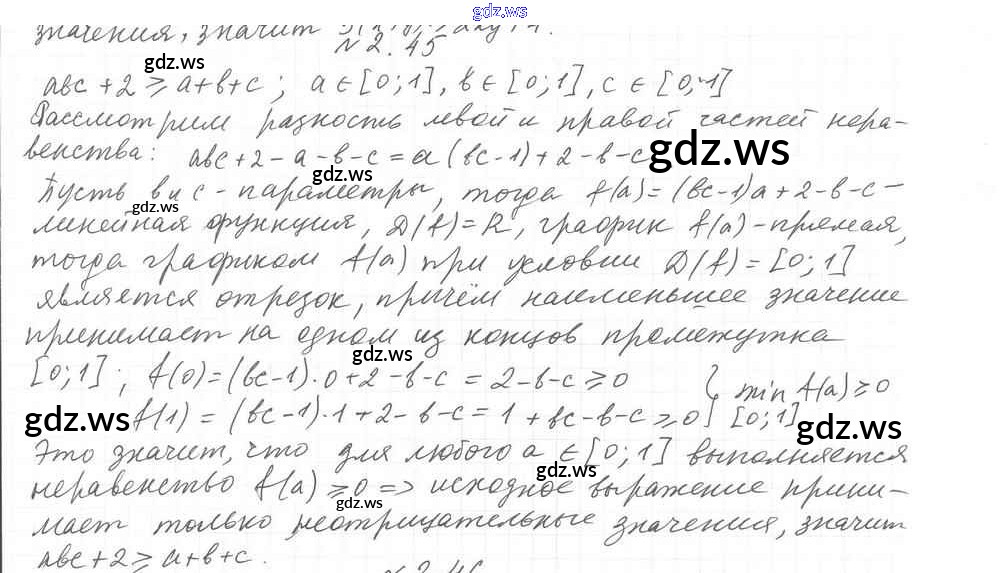 gdz.ws
значения, значит
N 2.45
abc + 2 ⩾ a+b+c ; a ∈ [0;1], b ∈ [0;1], c ∈ [0;1]
gdz.ws
Рассмотрим разность левой и правой частей нера-
венства: abc+2-a-b-c = a(bc-1)+2-b-c
gdz.ws
gdz.ws
Пусть b и c - параметры, тогда f(a)=(bc-1)a+2-b-c -
gdz.ws
линейная функция, D(f)=R, график f(a) - прямая,
тогда графиком f(a) при условии D(f)=[0;1]
является отрезок, причём наименьшее значение
принимает на одном из концов промежутка
gdz.ws
[0;1]; f(0)=(bc-1)·0+2-b-c = 2-b-c ⩾ 0 } min f(a) ⩾ 0
gdz.ws f(1) = (bc-1)·1+2-b-c = 1+bc-b-c ⩾ 0 [0;1]
gdz.ws
Это значит, что для любого a ∈ [0;1] выполняется
gdz.ws
неравенство f(a) ⩾ 0 => исходное выражение прини-
gdz.ws
мает только неотрицательные значения, значит
abc+2 ⩾ a+b+c.